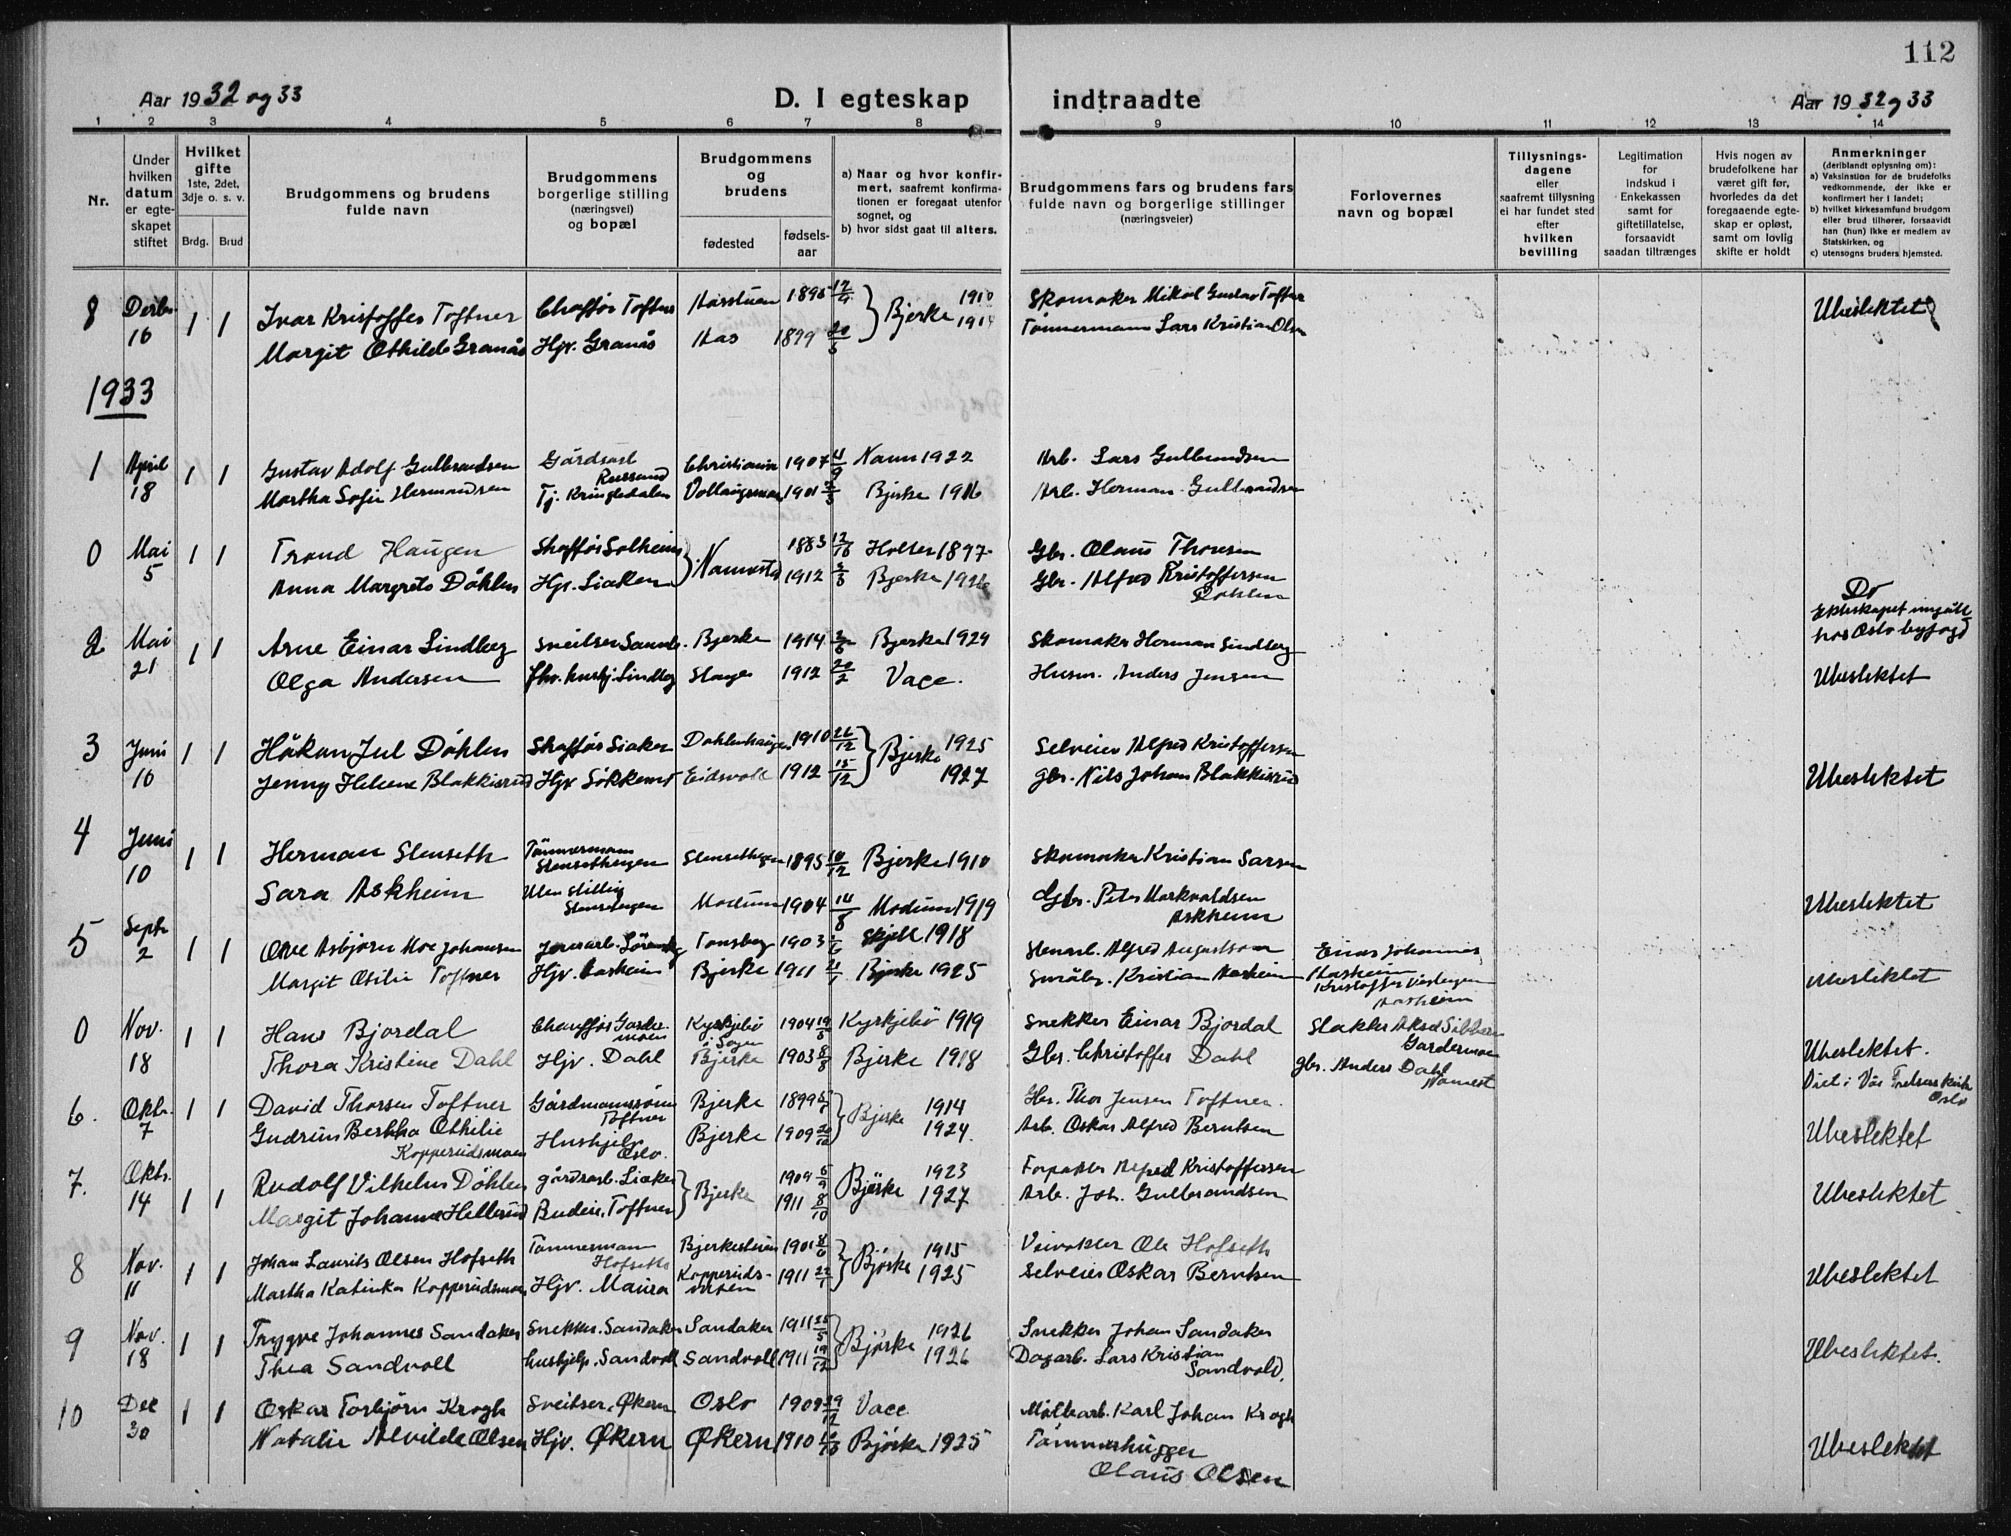 112
Aar 1932 og 33
D. I egteskap
indtraadte
Aar 1932 og 33
1 2 3 4 5 6 7 8 9 10 11 12 13 14
Nr.
Under
hvilken
datum
er egte-
skapet
stiftet
Hvilket
gifte
1ste, 2det,
3dje o. s. v.
Brdg. Brud
Brudgommens og brudens
fulde navn
Brudgommens
borgerlige stilling
(næringsvei)
og bopæl
Brudgommens
og
brudens
fødested
fødsels-
aar
a) Naar og hvor konfir-
mert, saafremt konfirma-
tionen er foregaat utenfor
sognet, og
b) hvor sidst gaat til alters.
Brudgommens fars og brudens fars
fulde navn og borgerlige stillinger
(næringsveier)
Forlovernes
navn og bopæl
Tillysnings-
dagene
eller
saafremt tillysning
ei har fundet sted
efter
hvilken
bevilling
Legitimation
for
indskud i
Enkekassen
samt for
giftetillatelse,
forsaavidt
saadan tiltrænges
Hvis nogen av
brudefolkene har
været gift før,
hvorledes da det
foregaaende egte-
skap er opløst,
samt om lovlig
skifte er holdt
Anmerkninger
(deriblandt oplysning om):
a) Vaksination for de brudefolks
vedkommende, der ikke er
konfirmert her i landet;
b) hvilket kirkesamfund brudgom
eller brud tilhører, forsaavidt
han (hun) ikke er medlem av
Statskirken, og
c) utensogns bruders hjemsted.
8 10 1 1 Ivar Kristoffer Toftner Chaffør Toftner 1895 Bjerke 1910 Skomaker Mikal Gustav Toftner Ubeslektet
Margit Othilde Granås Hjv. Granås Aas 1899 20/5 1914 Tømmermann Lars Kristian Olsen
1933
1 April 18 1 1 Gustav Adolf Gulbrandsen Christiania 1907 1922 Arb. Lars Gulbrandsen
Martha Sofie Hermandsen Tj. Kringledalen 1901 Bjerke 1916 Arb. Herman Gulbrandsen
0 Mai 5 1 1 Trond Haugen Shaffør Solheim Nannestad 1883 Holter 1897 Gbr. Olaus Thoresen
Anna Margrete Döhlen Hjv. Liaken 1912 Bjerke 1926 Gbr. Alfred Kristoffersen Döhlen
Do
Ekteskapet inngått
hos Oslo byfogd
2 Mai 21 1 1 Arne Einar Lindberg Bjerke 1914 Bjerke 1929 Skomaker Herman Lindberg
Olga Andersen Lindberg Stange 1912 20/2 Vace. Husm. Anders Jensen Ubeslektet
3 Juni 10 1 1 Håkon Jul Döhlen Shaffør Liaker Dohlenhaugen 1910 26/12 Bjerke 1925 Selveier Alfred Kristoffersen
Jenny Helene Blakkisrud Hjv. Eidsvoll 1912 15/12 1927 gbr. Nils Johan Blakkisrud Ubeslektet
4 Juni 10 1 1 Herman Stenseth Tømmermann Stensethengen Stensethengen 1895 10/12 Bjerke 1910 Skomaker Kristian Larsen
Sara Askheim Uten stilling Modum 1904 14/8 Modum 1919 Gbr. Peter Markvaldsen Askheim Ubeslektet
5 Septr 2 1 1 Ove Asbjørn Moe Johansen Tønsberg 1903 Skjell 1918 Stenarb. Alfred Augustsson Einar Johannes Aasheim
Margit Otilie Toftner Hjv. Aasheim Bjerke 1911 21/1 Bjerke 1925 Småbr. Kristian Aasheim Kristoffer Aasheim Ubeslektet
0 Nov. 18 1 1 Hans Bjordal Chauffør Garder-moen Kyrkjebø i Sogn 1904 19/5 Kyrkjebø 1919 Snekker Einar Bjordal Slakter Gardermoen
Thora Kristine Dahl Hjv. Dahl Bjerke 1903 8/8 Bjerke 1918 Gbr. Christoffer Dahl gbr. Anders Dahl Nannest Ubeslektet.
Viet i Vår Frelsers kirke
Oslo
6. Oktr. 7 1 1 David Thorsen Toftner Gårdmannssønn Toftner Bjerke 1899 Bjerke 1914 Gbr. Thor Jensen Toftner.
Gudrun Bertha Othilie Kopperudsmoen Hushjelp Oslo. Bjerke 1909 20/12 1924. Arb. Oskar Alfred Berntsen Ubeslektet
7. Oktr. 14 1 1 Rudolf Vilhelm Döhlen gårdsarb. Liaker Bjerke 1909 5/9 Bjerke 1923 Forpakter Alfred Kristoffersen
Margit Johanne Hellerud Budeie, Toftner 1911 8/10 1927 Arb. Joh. Gulbrandsen Ubeslektet
8 Nov. 11 1 1 Johan Laurits Olsen Hofseth Tømmermann Hofseth Bjerkestuen 1901 Bjørke 1915 Veivokter Ole Hofseth
Martha Katinka Kopperudsmoen Hjv. Maura Kopperuds-moen 1911 22/1 1925 Selveier Oskar Berntsen Ubeslektet
9 Nov. 18 1 1 Trygve Johannes Sandaker Snekker. Sandaker Sandaker 1911 25/5 Bjørke 1926 Snekker Johan Sandaker
Thea Sandvoll hushjelp. Sandvoll Sandvoll 1911 19/12 1926 Dagarb. Lars Kristian Sandvold. Ubeslektet.
10 Dec 30 1 1 Oskar Torbjørn Krogh Sveitser, Økern Oslo 1909 29/12 Vace Karl Johan Krogh
Natalie Alvilde Olsen Hjv. Økern Økern 1910 Bjørke 1925 Tømmerhugger Olaus Olsen Ubeslektet